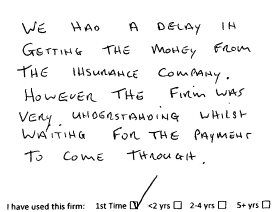 WE HAD A DELAY IN
GETTING THE MONEY FROM
THE INSURANCE COMPANY.
HOWEVER THE FIRM WAS
VERY UNDERSTANDING WHILST
WAITING FOR THE PAYMENT
TO COME THROUGH.
I have used this firm: 1st Time ☑ <2 yrs ☐ 2-4 yrs ☐ 5+ yrs ☐